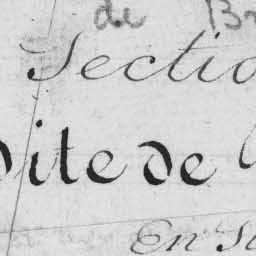 de Br
Section
dite de
En